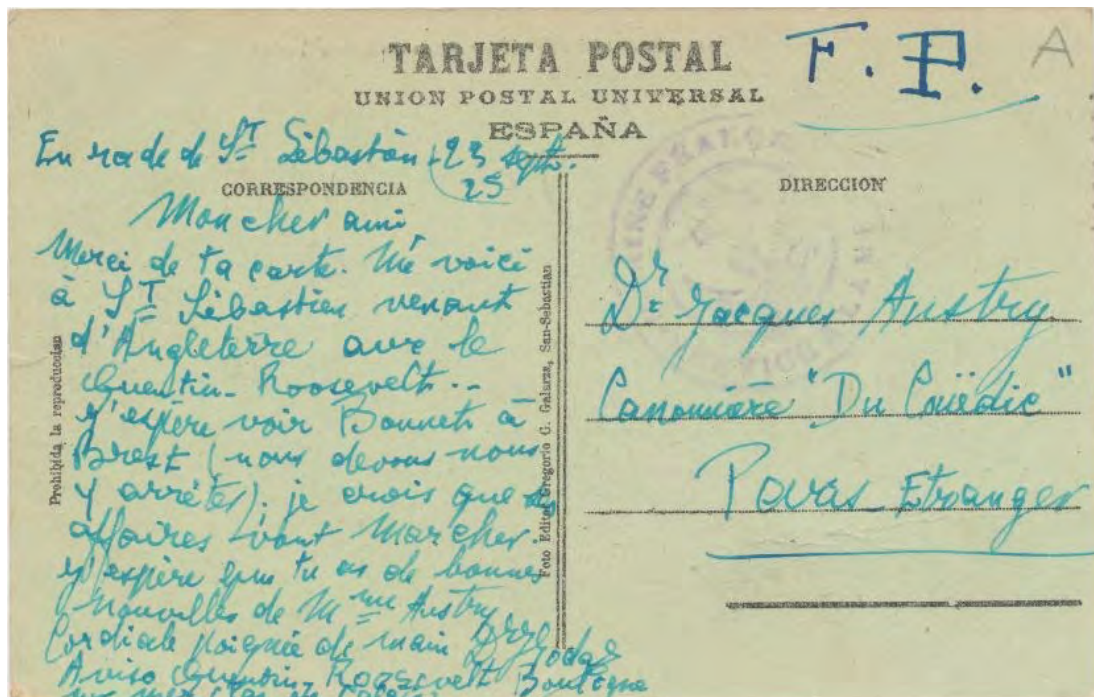 TARJETA POSTAL
UNION POSTAL UNIVERSAL
ESPAÑA
F. P.
A
En rade de St Sébastian 23 sept.
25
CORRESPONDENCIA
DIRECCION
Mon cher ami
Merci de ta carte. Me voici
à St Sébastien venant
d'Angleterre avec le
Quentin-Roosevelt..
J'espère voir Bonnet à
Brest (nous devons nous
y arrêter). je crois que
affaires vont marcher.
J'espère que tu as de bonnes
nouvelles de Mme Austry
Cordiale poignée de main
Aviso Quentin-Roosevelt Boulogne
Prohibida la reproduccion
Foto Editor Gregorio G. Galarza, San-Sebastian
Dr Jacques Austry
Canonnière "Du Couëdic"
Etranger